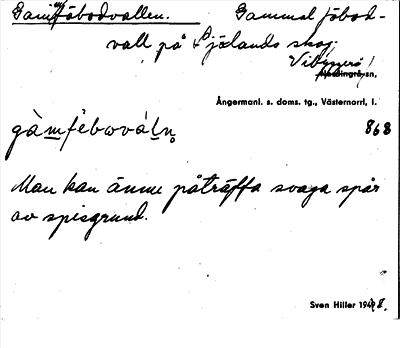 Gamfäbodvallen. Gammal fäbod-
vall på Själands skog.
Vibyggerå
Nordingrå sn,
Ångermanl. s. doms. tg., Västernorrl. l.
868
Man kan ännu påträffa svaga spår
av spisgrund.
Sven Hiller 1948.